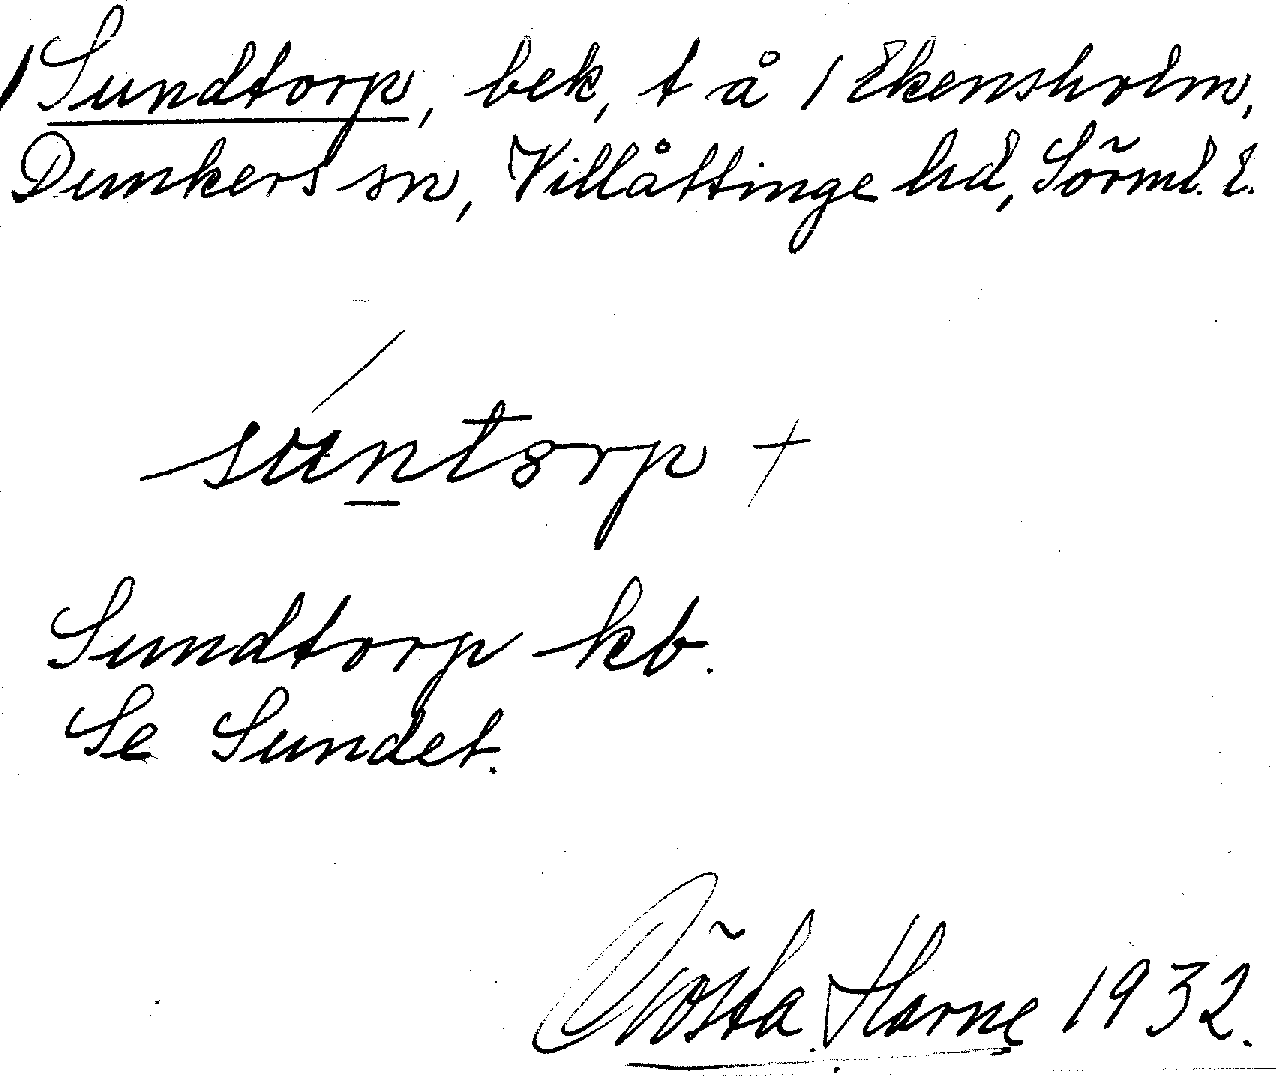 / Sundtorp, bek, t å / Ekensholm,
Dunkers sn, Villåttinge hd, Sörml. l.
súntorp +
Sundtorp kb.
Se Sundet.
Gösta Harne 1932.